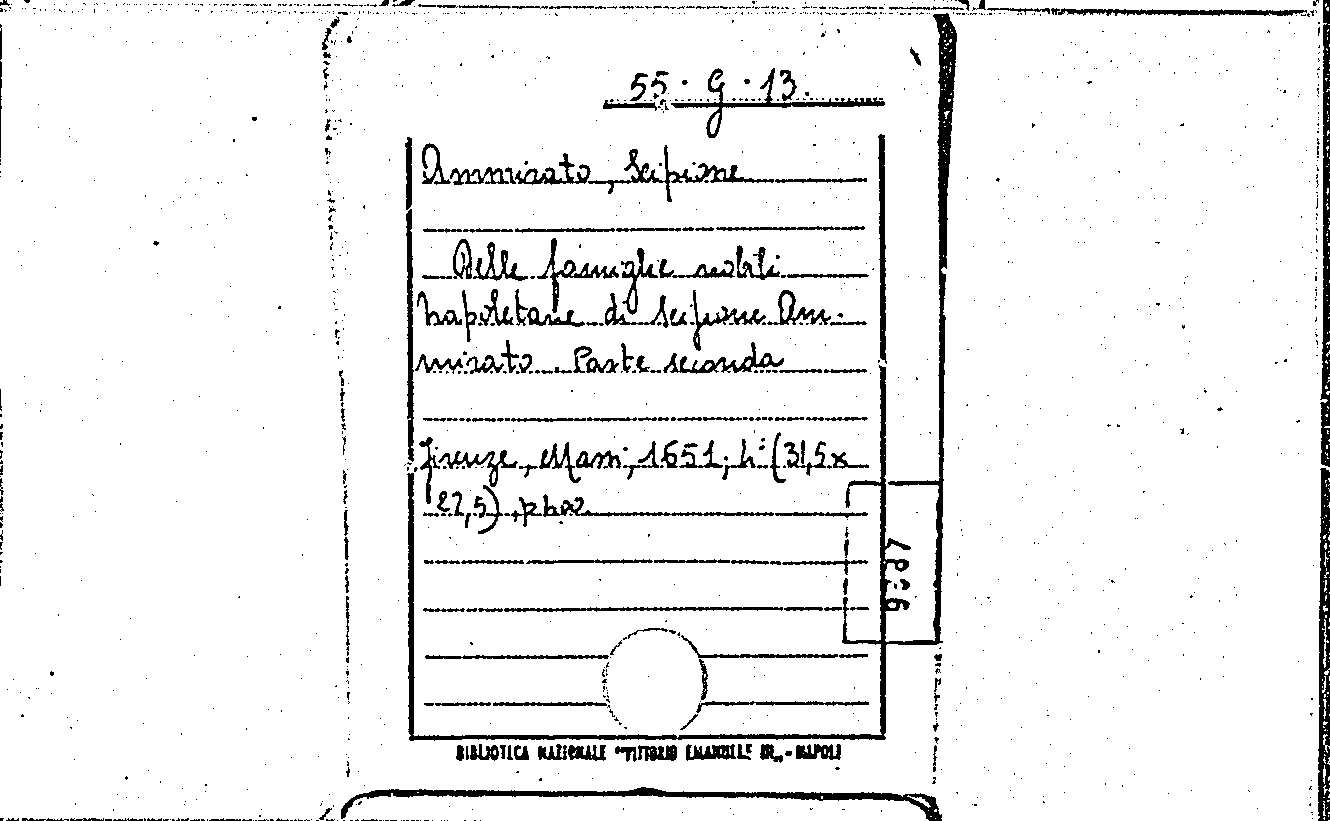 55. G. 13.
Ammirato, Scipione
Delle famiglie nobili
napoletane di Scipione Am-
mirato. Parte seconda
Firenze, Massi, 1651; 4° (31,5x
22,5), p
BIBLIOTECA NAZIONALE "VITTORIO EMANUELE III" - NAPOLI